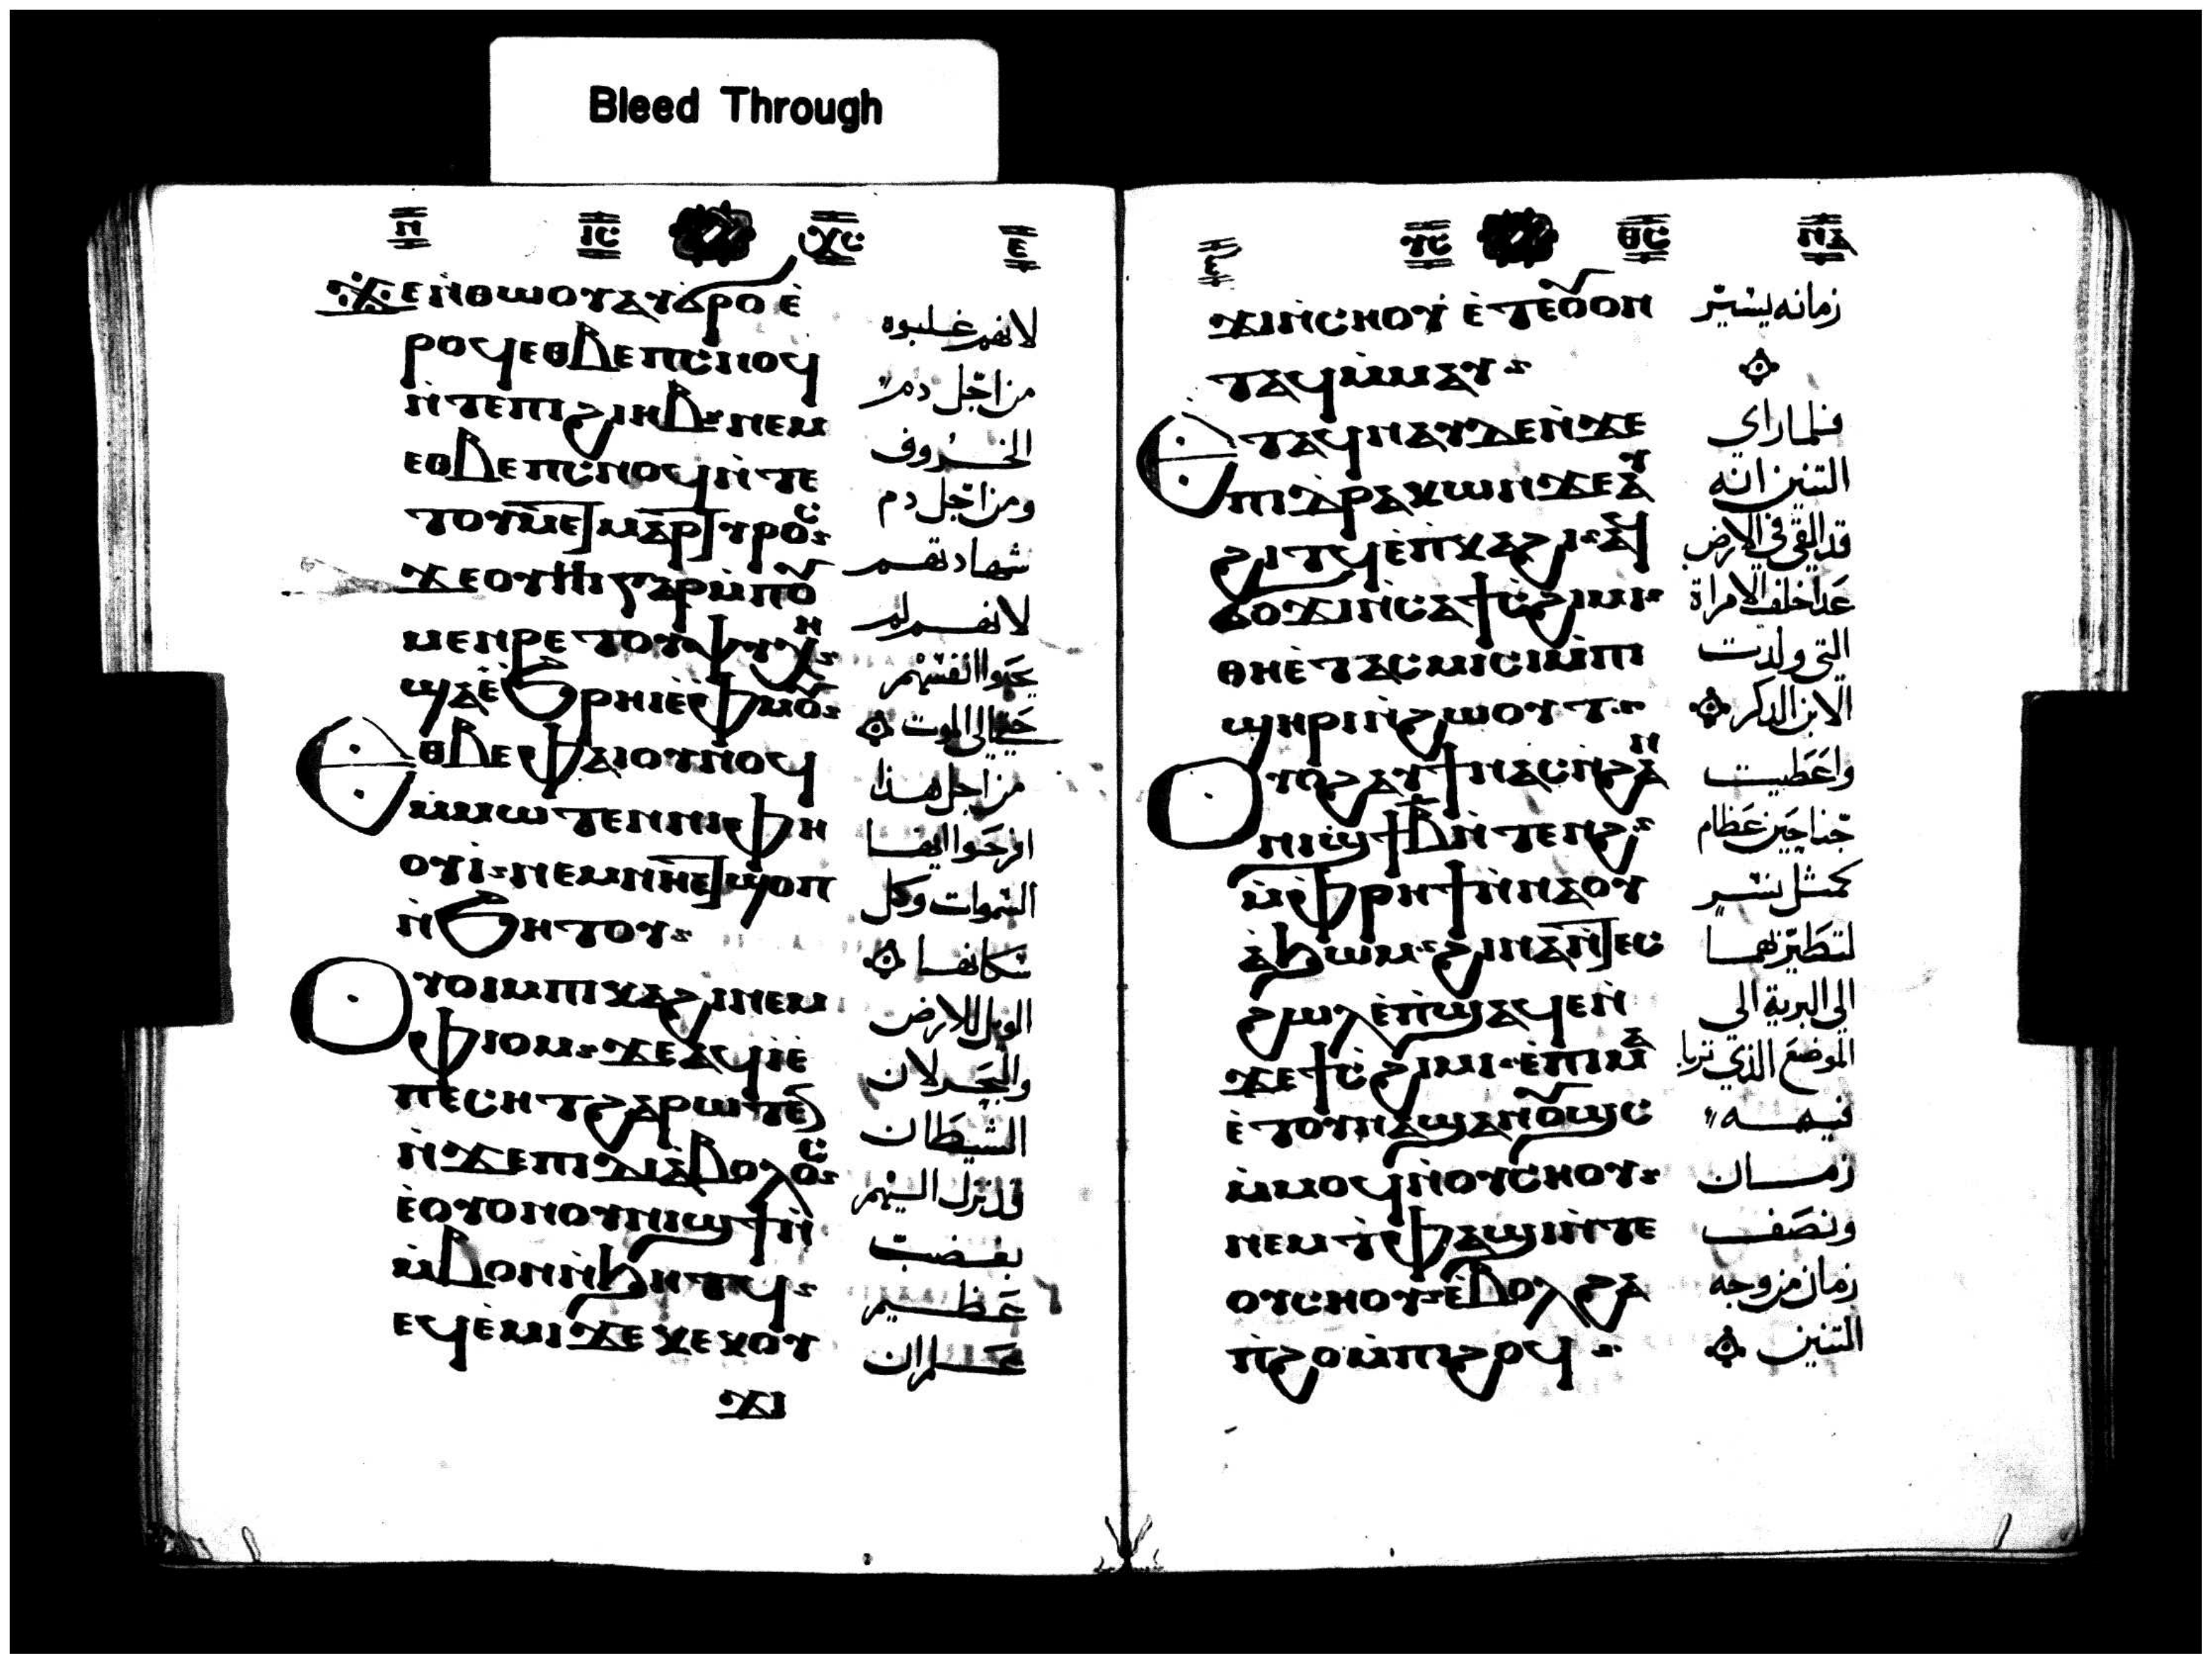 Bleed Through
ⲛ ⲓⲥ ⲭⲥ ⲉ
ϫⲉⲛ̀ⲑⲱⲟⲩⲁⲩϭⲣⲟ ⲉ̀
ⲣⲟϥⲉⲑⲃⲉⲡⲥ̀ⲛⲟϥ
ⲛ̀ⲧⲉⲡⲓϩⲓⲏⲃ ⲛⲉⲙ
ⲉⲑⲃⲉⲡⲥ̀ⲛⲟϥⲛ̀ⲧⲉ
ⲧⲟⲩⲙⲉⲧⲙⲁⲣⲧⲩⲣⲟⲥ
ϫⲉⲟⲩⲏⲓ ⲅⲁⲣⲙ̀ⲡⲟⲩ
ⲙⲉⲛⲣⲉ ⲧⲟⲩⲯⲩⲭⲏ
ϣⲁⲉ̀ϧⲣⲏⲓⲉ̀ⲫ̀ⲙⲟⲩ
ⲉⲑⲃⲉⲫⲁⲓⲟⲩⲛⲟϥ
ⲙ̀ⲙⲱⲧⲉⲛⲛⲓⲫⲏ
ⲟⲩⲓ̀ ⲛⲉⲙⲛⲏⲉⲧϣⲟⲡ
ⲛ̀ϧⲏⲧⲟⲩ
ⲟⲩⲟⲓⲙⲡⲓⲕⲁϩⲓⲛⲉⲙ
ⲫⲓⲟⲙ ϫⲉⲁϥⲓ̀ⲉ̀
ⲡⲉⲥⲏⲧϩⲁⲣⲱⲧⲉⲛ
ⲛ̀ϫⲉⲡⲓⲇⲓⲁⲃⲟⲗⲟⲥ
ⲉ̀ⲟⲩⲟⲛⲟⲩⲛⲓϣϯⲛ̀
ⲙ̀ⲃⲟⲛⲛ̀ϧⲏⲧϥ
ⲉϥⲉ̀ⲙⲓϫⲉⲕⲉⲕⲟⲩ
ϫⲓ
لانهم غلبوه
من اجل دم
الخروف
ومن اجل دم
شهادتهم
لانهم لم
يحبوا انفسهم
حتى الى الموت
من اجل هذا
افرحوا ايها
السموات وكل
سكانها
الويل للارض
والبحر لان
الشيطان
قد نزل اليهم
بغضب
عظيم
ⲩⲥ ⲑⲥ ⲛⲁ
ϫⲓⲛ̀ⲥⲏⲟⲩ ⲉ̀ⲧⲉⲟⲩⲟⲛ
ⲧⲁϥⲙ̀ⲙⲁⲩ
ⲉⲧⲁϥⲛⲁⲩⲇⲉⲛ̀ϫⲉ
ⲡⲓⲇ̀ⲣⲁⲕⲱⲛϫⲉⲁⲩ
ϩⲓⲧϥⲉ̀ⲡⲕⲁϩⲓ ⲁϥ
ϭⲟϫⲓⲛ̀ⲥⲁϯⲥ̀ϩⲓⲙⲓ
ⲑⲏⲉ̀ⲧⲁⲥⲙⲓⲥⲓⲙ̀ⲡⲓ
ϣⲏⲣⲓⲛ̀ϩⲱⲟⲩⲧ
ⲟⲩⲟϩⲁⲩϯⲛⲁⲥⲛ̀ϩⲁⲛ
ⲛⲓϣϯⲃ̄ⲛ̀ⲧⲉⲛϩ
ⲙ̀ⲫ̀ⲣⲏϯⲛ̀ⲛⲁⲟⲩ
ⲁϧⲱⲙ ϩⲓⲛⲁⲛ̀ⲧⲉⲥ
ϩⲱⲗⲉ̀ⲡϣⲁϥⲉⲛ̀
ϫⲉϯⲥ̀ϩⲓⲙⲓ ⲉ̀ⲡⲓⲙⲁ
ⲉ̀ⲧⲟⲩⲛⲁϣⲁⲛⲟⲩϣⲥ
ⲙ̀ⲙⲟϥⲛ̀ⲟⲩⲥⲏⲟⲩ
ⲛⲉⲙⲧ̀ⲫⲁϣⲓⲛ̀ⲧⲉ
ⲟⲩⲥⲏⲟⲩ ⲉ̀ⲃⲟⲗϩⲁ
ⲡ̀ϩⲟⲙ̀ⲡⲓϩⲟϥ
زمانه يسير
فلما راي
التنين انه
قد القي في الارض
عدا خلف الامراة
التي ولدت
الابن الذكر
واعطيت
جناحين عظام
كمثل نسر
لتطير بهما
الى البرية الى
الموضع الذي تربا
فيه
زمان
ونصف
زمان من وجه
التنين